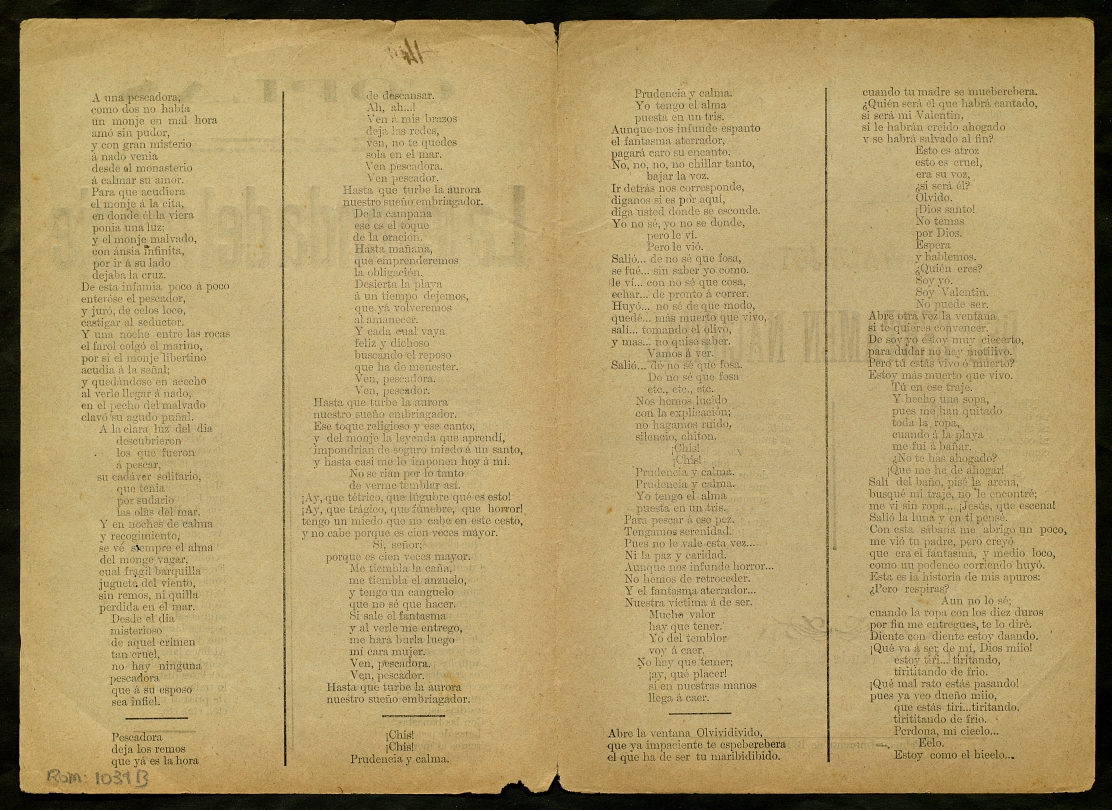 A una pescadora,
como dos no había
un monje en mal hora
amó sin pudor,
y con gran misterio
á nado venia
desde el monasterio
á calmar su amor.
Para que acudiera
el monje á la cita,
en donde él la viera
ponia una luz;
y el monje malvado,
con ánsia infinita,
por ir á su lado
dejaba la cruz.
De esta infamia poco á poco
enteróse el pescador,
y juró, de celos loco,
castigar al seductor.
Y una noche entre las rocas
el farol colgó el marino,
por si el monje libertino
acudia á la señal;
y quedándose en acecho
al verle llegar á nado,
en el pecho del malvado
clavó su agudo puñal.
A la clara luz del dia
descubrieron
los que fueron
á pescar,
su cadáver solitario,
que tenia
por sudario
las olas del mar.
Y en noches de calma
y recogimiento,
se vé siempre el alma
del monge vagar,
cual frágil barquilla
juguete del viento,
sin remos, ni quilla
perdida en el mar.
Desde el dia
misterioso
de aquel crimen
tan cruel,
no hay ninguna
pescadora
que á su esposo
sea infiel.
Pescadora
deja los remos
que yá es la hora
Rom: 1031 B
14
de descansar.
Ah, ah...!
Ven á mis brazos
deja las redes,
ven, no te quedes
sola en el mar.
Ven pescadora.
Ven pescador.
Hasta que turbe la aurora
nuestro sueño embriagador.
De la campana
ese es el toque
de la oracion.
Hasta mañana,
que emprenderemos
la obligación.
Desierta la playa
á un tiempo dejemos,
que yá volveremos
al amanecer.
Y cada cual vaya
feliz y dichoso
buscando el reposo
que ha de menester.
Ven, pescadora.
Ven, pescador.
Hasta que turbe la aurora
nuestro sueño embriagador.
Ese toque religioso y ese canto,
y del monje la leyenda que aprendí,
impondrían de seguro miedo á un santo,
y hasta casi me lo imponen hoy á mí.
No se rian por lo tanto
de verme temblar así.
¡Ay, que tétrico, que lúgubre qué es esto!
¡Ay, que trágico, que fúnebre, que horror!
tengo un miedo que no cabe en este cesto,
y no cabe porque es cien veces mayor.
Si, señor;
porque es cien veces mayor.
Me tiembla la caña,
me tiembla el anzuelo,
y tengo un canguelo
que no sé que hacer.
Si sale el fantasma
y al verle me entrego,
me hará burla luego
mi cara mujer.
Ven, pescadora.
Ven, pescador.
Hasta que turbe la aurora
nuestro sueño embriagador.
¡Chis!
¡Chis!
Prudencia y calma.
Prudencia y calma.
Yo tengo el alma
puesta en un tris.
Aunque nos infunde espanto
el fantasma aterrador,
pagará caro su encanto.
No, no, no, no chillar tanto,
bajar la voz.
Ir detrás nos corresponde,
diganos si es por aquí,
diga usted donde se esconde.
Yo no sé, yo no se donde,
pero le ví.
Pero le vió.
Salió... de no sé que fosa,
se fué... sin saber yo como.
le ví... con no sé que cosa,
echar... de pronto á correr.
Huyó... no sé de que modo,
quedé... más muerto que vivo,
salí... tomando el olivo,
y mas... no quise saber.
Vamos á ver.
Salió... de no sé que fosa.
De no sé que fosa
etc., etc., etc.
Nos hemos lucido
con la explicación;
no hagamos ruido,
silencio, chiton.
¡Chis!
¡Chis!
Prudencia y calma.
Prudencia y calma.
Yo tengo el alma
puesta en un tris.
Para pescar á ese pez.
Tengamos serenidad.
Pues no le vale esta vez...
Ni la paz y caridad.
Aunque nos infunde horror...
No hemos de retroceder.
Y el fantasma aterrador...
Nuestra victima á de ser.
Mucho valor
hay que tener.
Yo del temblor
voy á caer.
No hay que temer;
¡ay, qué placer!
si en nuestras manos
llega á caer.
Abre la ventana Olvividivido,
que ya impaciente te espeberebera
el que ha de ser tu maribidibido.
cuando tu madre se mueberebera.
¿Quién será el que habrá cantado,
si será mi Valentin,
si le habrán creido ahogado
y se habrá salvado al fin?
Esto es atroz
esto es cruel,
era su voz,
¿si será él?
Olvido.
¡Dios santo!
No temas
por Dios.
Espera
y hablemos.
¿Quién eres?
Soy yo.
Soy Valentin.
No puede ser.
Abre otra vez la ventana
si te quieres convencer.
De soy yo estoy muy ciecerto,
para dudar no hay motiivo.
Pero tú estás vivo ó muerto?
Estoy más muerto que vivo.
Tú en ese traje.
Y hecho una sopa,
pues me han quitado
toda la ropa,
cuando á la playa
me fuí á bañar.
¿No te has ahogado?
¡Que me he de ahogar!
Salí del baño, pisé la arena,
busqué mi traje, no le encontré;
me ví sin ropa... ¡Jesús, que escena!
Salió la luna y en tí pensé.
Con esta sábana me abrigo un poco,
me vió tu padre, pero creyó
que era el fantasma, y medio loco,
como un podenco corriendo huyó.
Esta es la historia de mis apuros:
¿Pero respiras?
Aun no lo sé;
cuando la ropa con los diez duros
por fin me entregues, te lo diré.
Diente con diente estoy daando.
¡Qué va á ser de mí, Dios miio!
estoy tiri... tiritando,
tirititando de frio.
¡Qué mal rato estás pasando!
pues ya veo dueño miio,
que estás tiri...tiritando.
tirititando de frio.
Perdona, mi cieelo...
Eelo.
Estoy como el hieelo...